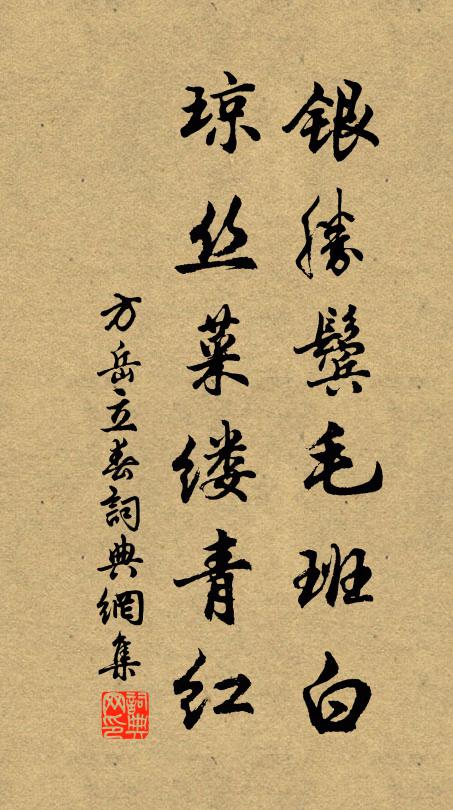 银胜鬓毛班白
琼丝菜缕青红
方岳立春詞典網集
詞典网印